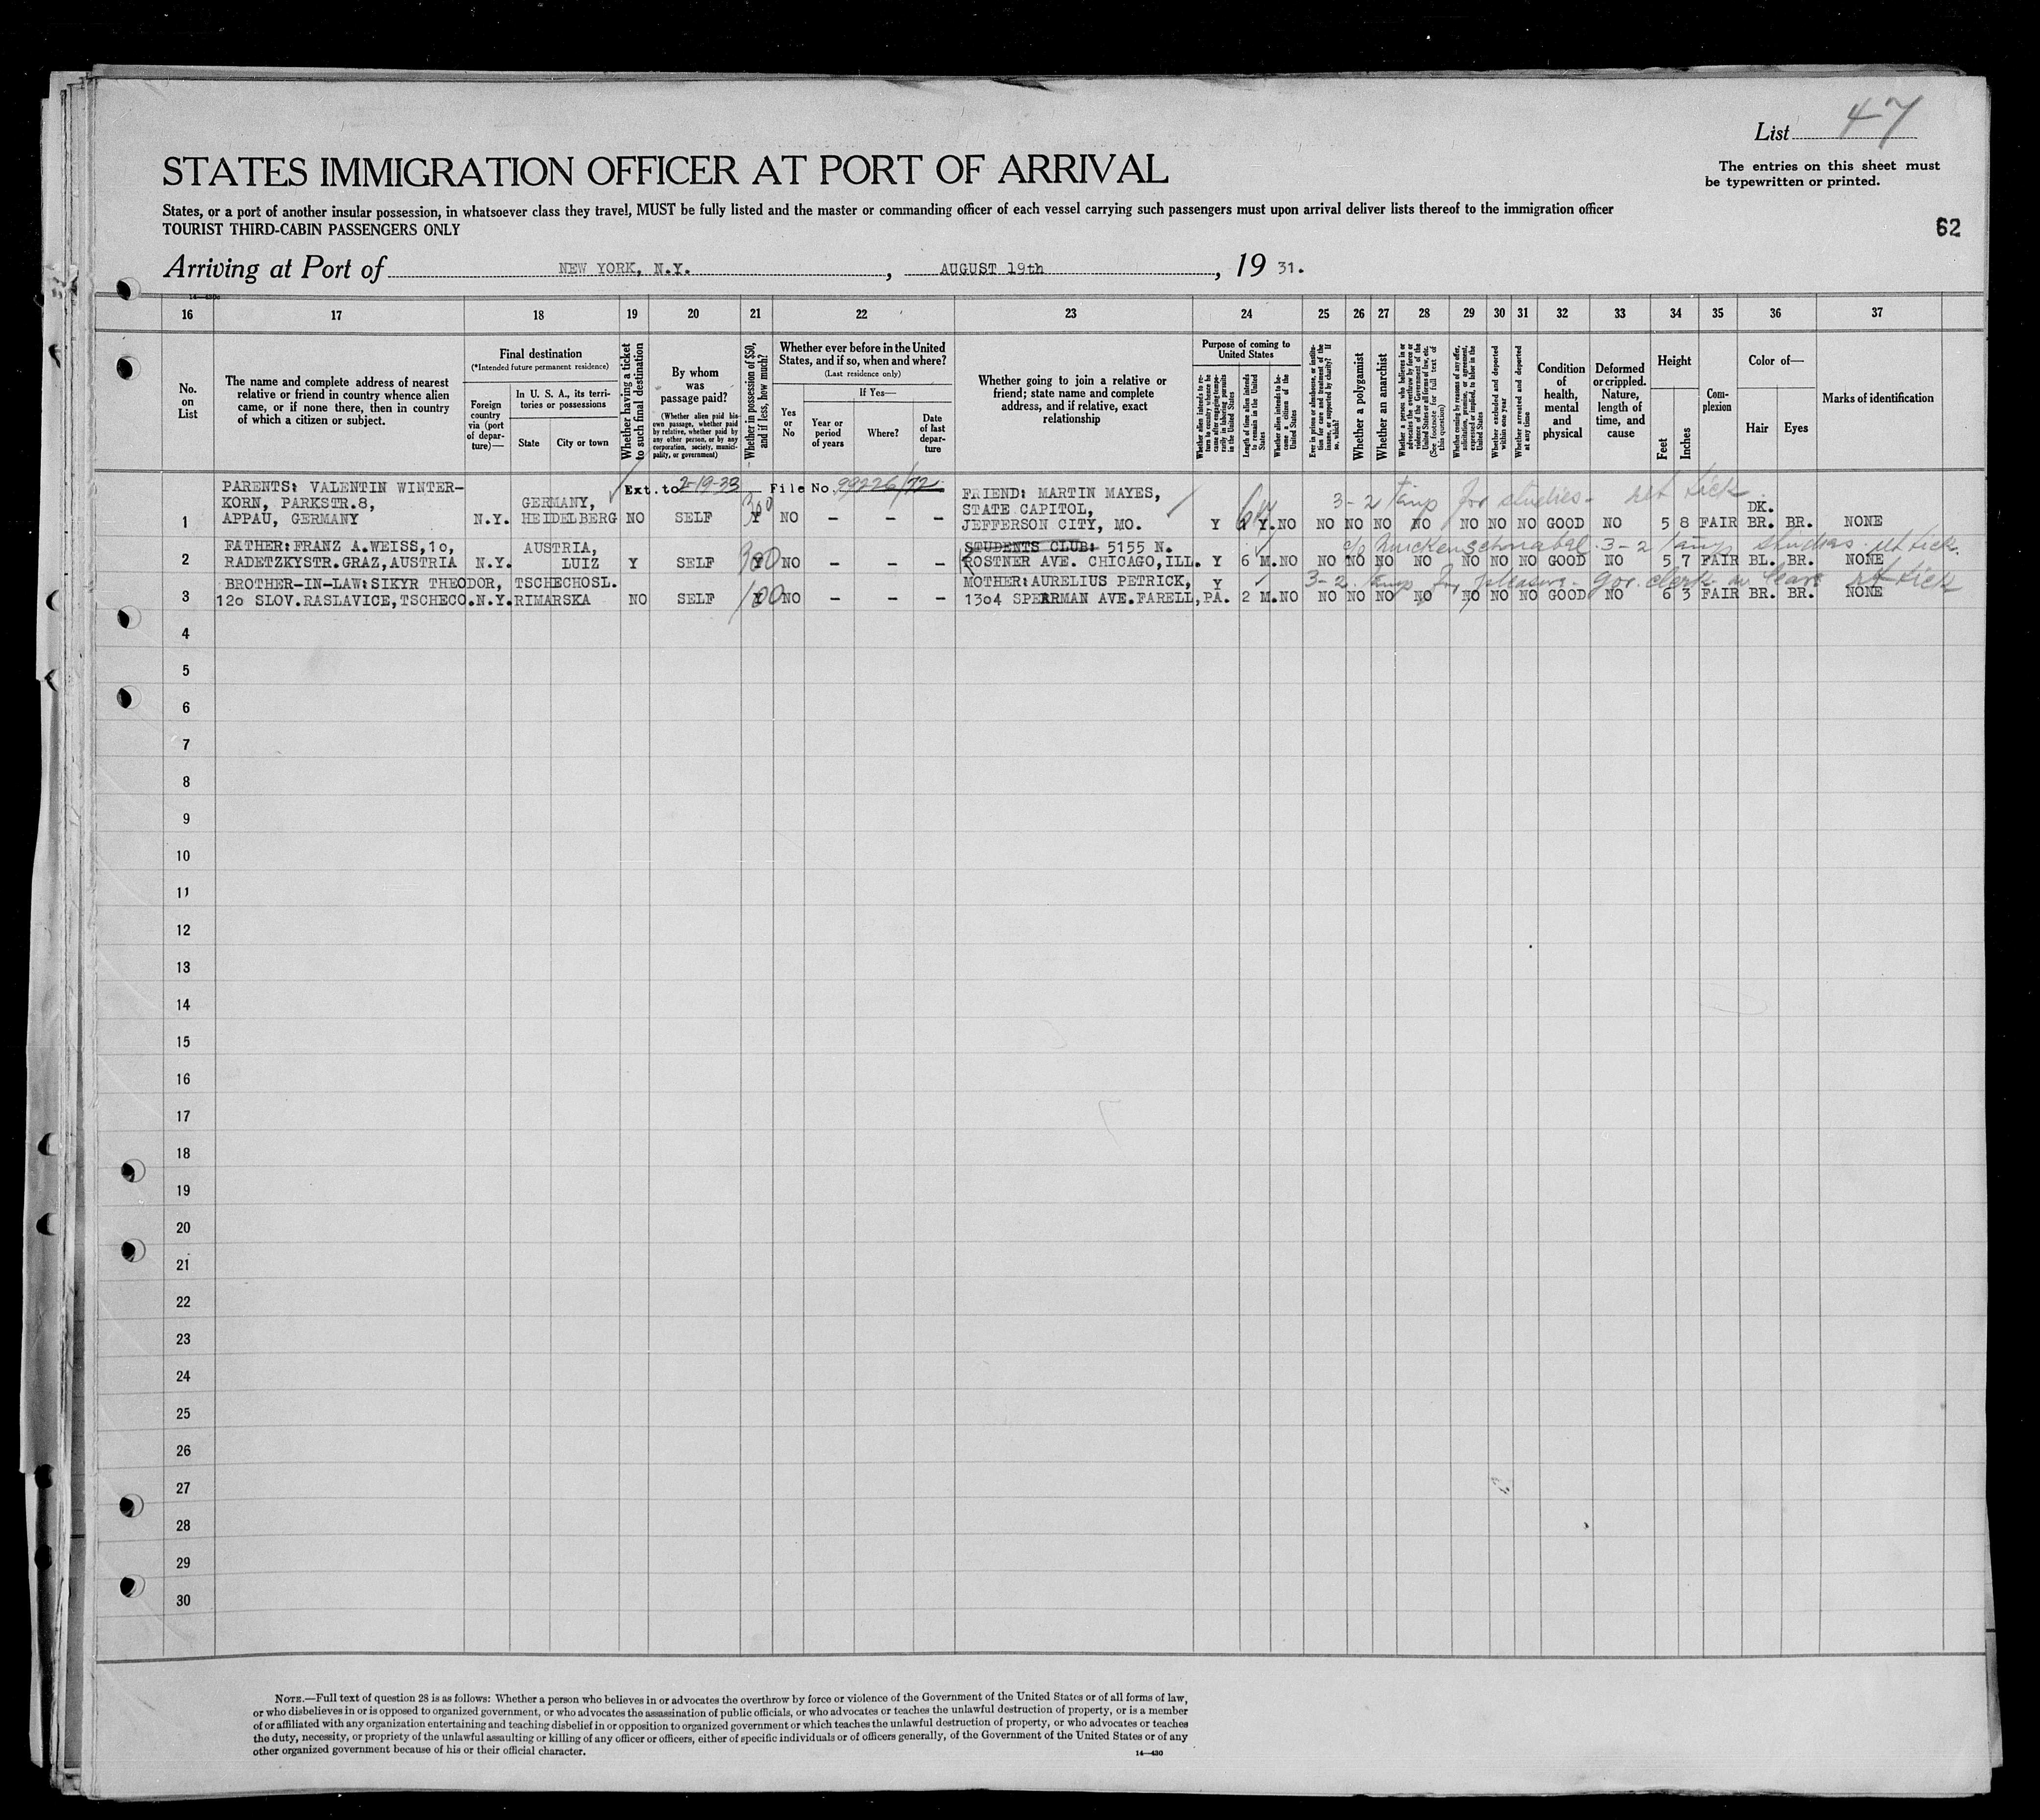 List 47
STATES IMMIGRATION OFFICER AT PORT OF ARRIVAL
The entries on this sheet must
be typewritten or printed.
States, or a port of another insular possession, in whatsoever class they travel, MUST be fully listed and the master or commanding officer of each vessel carrying such passengers must upon arrival deliver lists thereof to the immigration officer
TOURIST THIRD-CABIN PASSENGERS ONLY
62
Arriving at Port of NEW YORK, N.Y., AUGUST 19th, 19 31.
16 17 18 19 20 21 22 23 24 25 26 27 28 29 30 31 32 33 34 35 36 37
No. on List
The name and complete address of nearest relative or friend in country whence alien came, or if none there, then in country of which a citizen or subject.
Final destination
(*Intended future permanent residence)
Foreign country via (port of departure)—
In U. S. A., its territories or possessions
State
City or town
Whether having a ticket to such final destination
By whom was passage paid?
(Whether alien paid his own passage, whether paid by relative, whether paid by any other person, or by any corporation, society, municipality, or government)
Whether in possession of $50, and if less, how much?
Whether ever before in the United States, and if so, when and where?
(Last residence only)
Yes or No
If Yes—
Year or period of years
Where?
Date of last departure
Whether going to join a relative or friend; state name and complete address, and if relative, exact relationship
Purpose of coming to United States
Whether alien intends to return to country whence he came after engaging temporarily in laboring pursuits in the United States
Length of time alien intends to remain in the United States
Whether alien intends to become a citizen of the United States
Ever in prison or almshouse, or institution for care and treatment of the insane, or supported by charity? If so, which?
Whether a polygamist
Whether an anarchist
Whether a person who believes in or advocates the overthrow by force or violence of the Government of the United States or all forms of law, etc. (See footnote for full text of this question)
Whether coming by reason of any offer, solicitation, promise, or agreement, expressed or implied, to labor in the United States
Whether excluded and deported within one year
Whether arrested and deported at any time
Condition of health, mental and physical
Deformed or crippled. Nature, length of time, and cause
Height
Feet
Inches
Complexion
Color of—
Hair
Eyes
Marks of identification
PARENTS: VALENTIN WINTER- Ext. to 2-19-33 File No. 99226/72
KORN, PARKSTR.8, GERMANY, 300 FRIEND: MARTIN MAYES, STATE CAPITOL, 3-2 Temp for studies - ret tick DK.
1 APPAU, GERMANY N.Y. HEIDELBERG NO SELF Y NO – – – JEFFERSON CITY, MO. Y Y. NO NO NO NO NO NO NO NO GOOD NO 5 8 FAIR BR. BR. NONE
FATHER:FRANZ A.WEISS,10, AUSTRIA, STUDENTS CLUB: 5155 N. c/o 3-2 Temp studies ret tick.
2 RADETZKYSTR.GRAZ,AUSTRIA N.Y. LUIZ Y SELF 300 NO – – – KOSTNER AVE. CHICAGO,ILL. Y 6 M. NO NO NO NO NO NO NO NO GOOD NO 5 7 FAIR BL. BR. NONE
BROTHER-IN-LAW:SIKYR THEODOR, TSCHECHOSL. MOTHER:AURELIUS PETRICK, Y 3-2. Temp for pleasure - gov. clerk on leave ret tick
3 120 SLOV.RASLAVICE,TSCHECO.N.Y.RIMARSKA NO SELF 100 NO – – – 1304 SPEARMAN AVE.FARELL,PA. 2 M. NO NO NO NO NO NO NO NO GOOD NO 6 3 FAIR BR. BR. NONE
4
5
6
7
8
9
10
11
12
13
14
15
16
17
18
19
20
21
22
23
24
25
26
27
28
29
30
NOTE.—Full text of question 28 is as follows: Whether a person who believes in or advocates the overthrow by force or violence of the Government of the United States or of all forms of law,
or who disbelieves in or is opposed to organized government, or who advocates the assassination of public officials, or who advocates or teaches the unlawful destruction of property, or is a member
of or affiliated with any organization entertaining and teaching disbelief in or opposition to organized government or which teaches the unlawful destruction of property, or who advocates or teaches
the duty, necessity, or propriety of the unlawful assaulting or killing of any officer or officers, either of specific individuals or of officers generally, of the Government of the United States or of any
other organized government because of his or their official character.
14—430